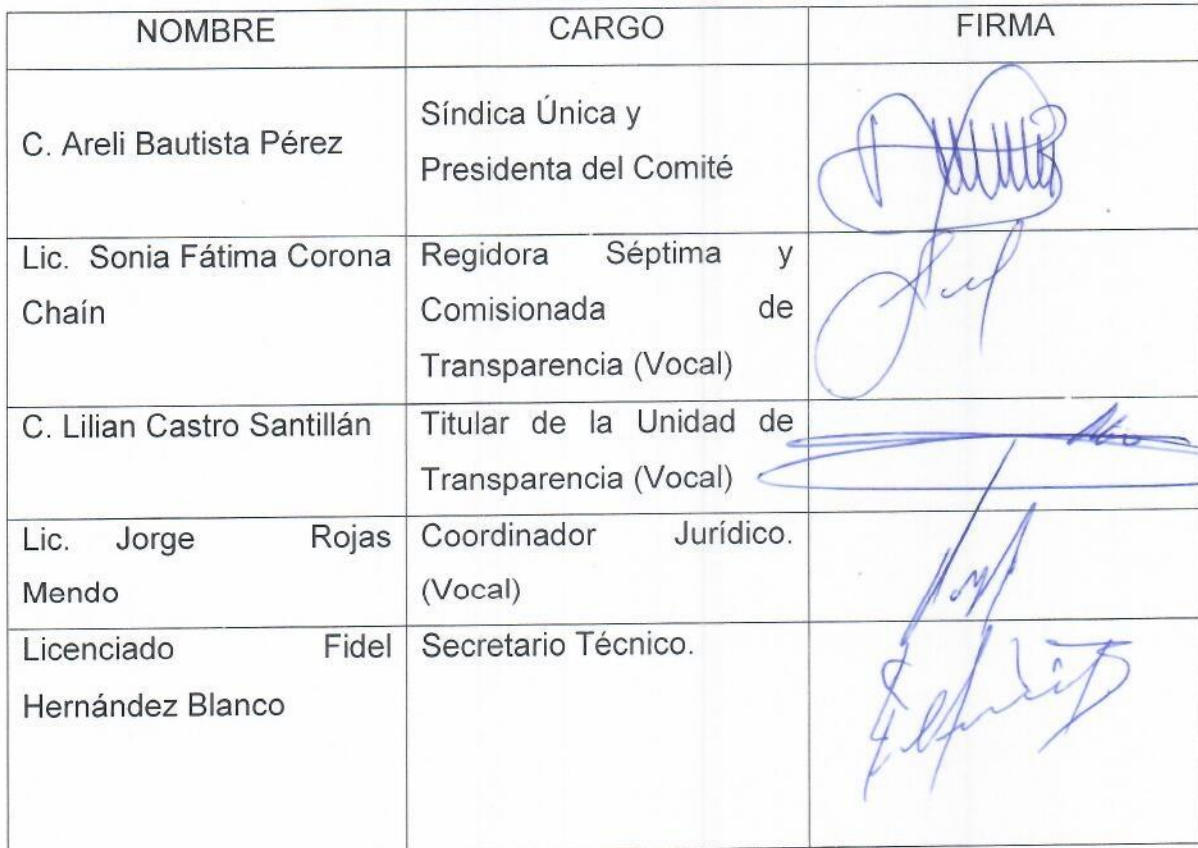 NOMBRE CARGO FIRMA
C. Areli Bautista Pérez
Síndica Única y
Presidenta del Comité
Lic. Sonia Fátima Corona
Chaín
Regidora Séptima y
Comisionada de
Transparencia (Vocal)
C. Lilian Castro Santillán
Titular de la Unidad de
Transparencia (Vocal)
Lic. Jorge Rojas
Mendo
Coordinador Jurídico.
(Vocal)
Licenciado Fidel
Hernández Blanco
Secretario Técnico.